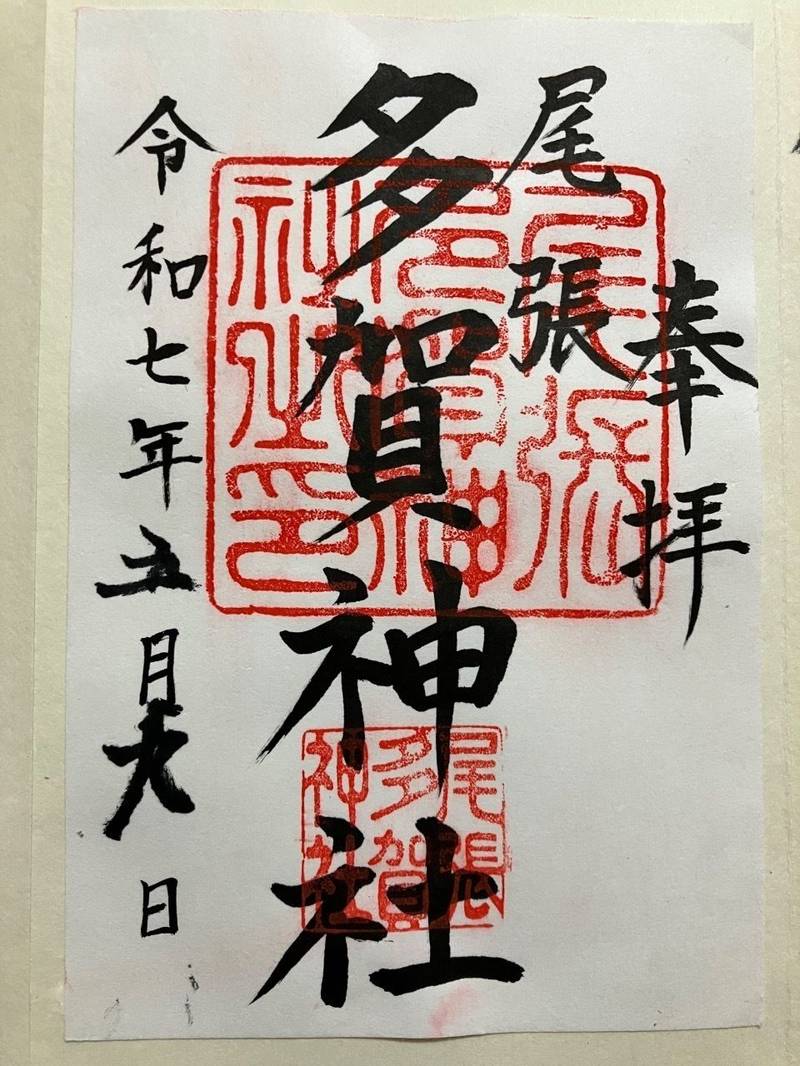 奉拝
尾張
多賀神社
令和七年五月 日
尾張
多賀神
社之印
尾張
多賀
神社